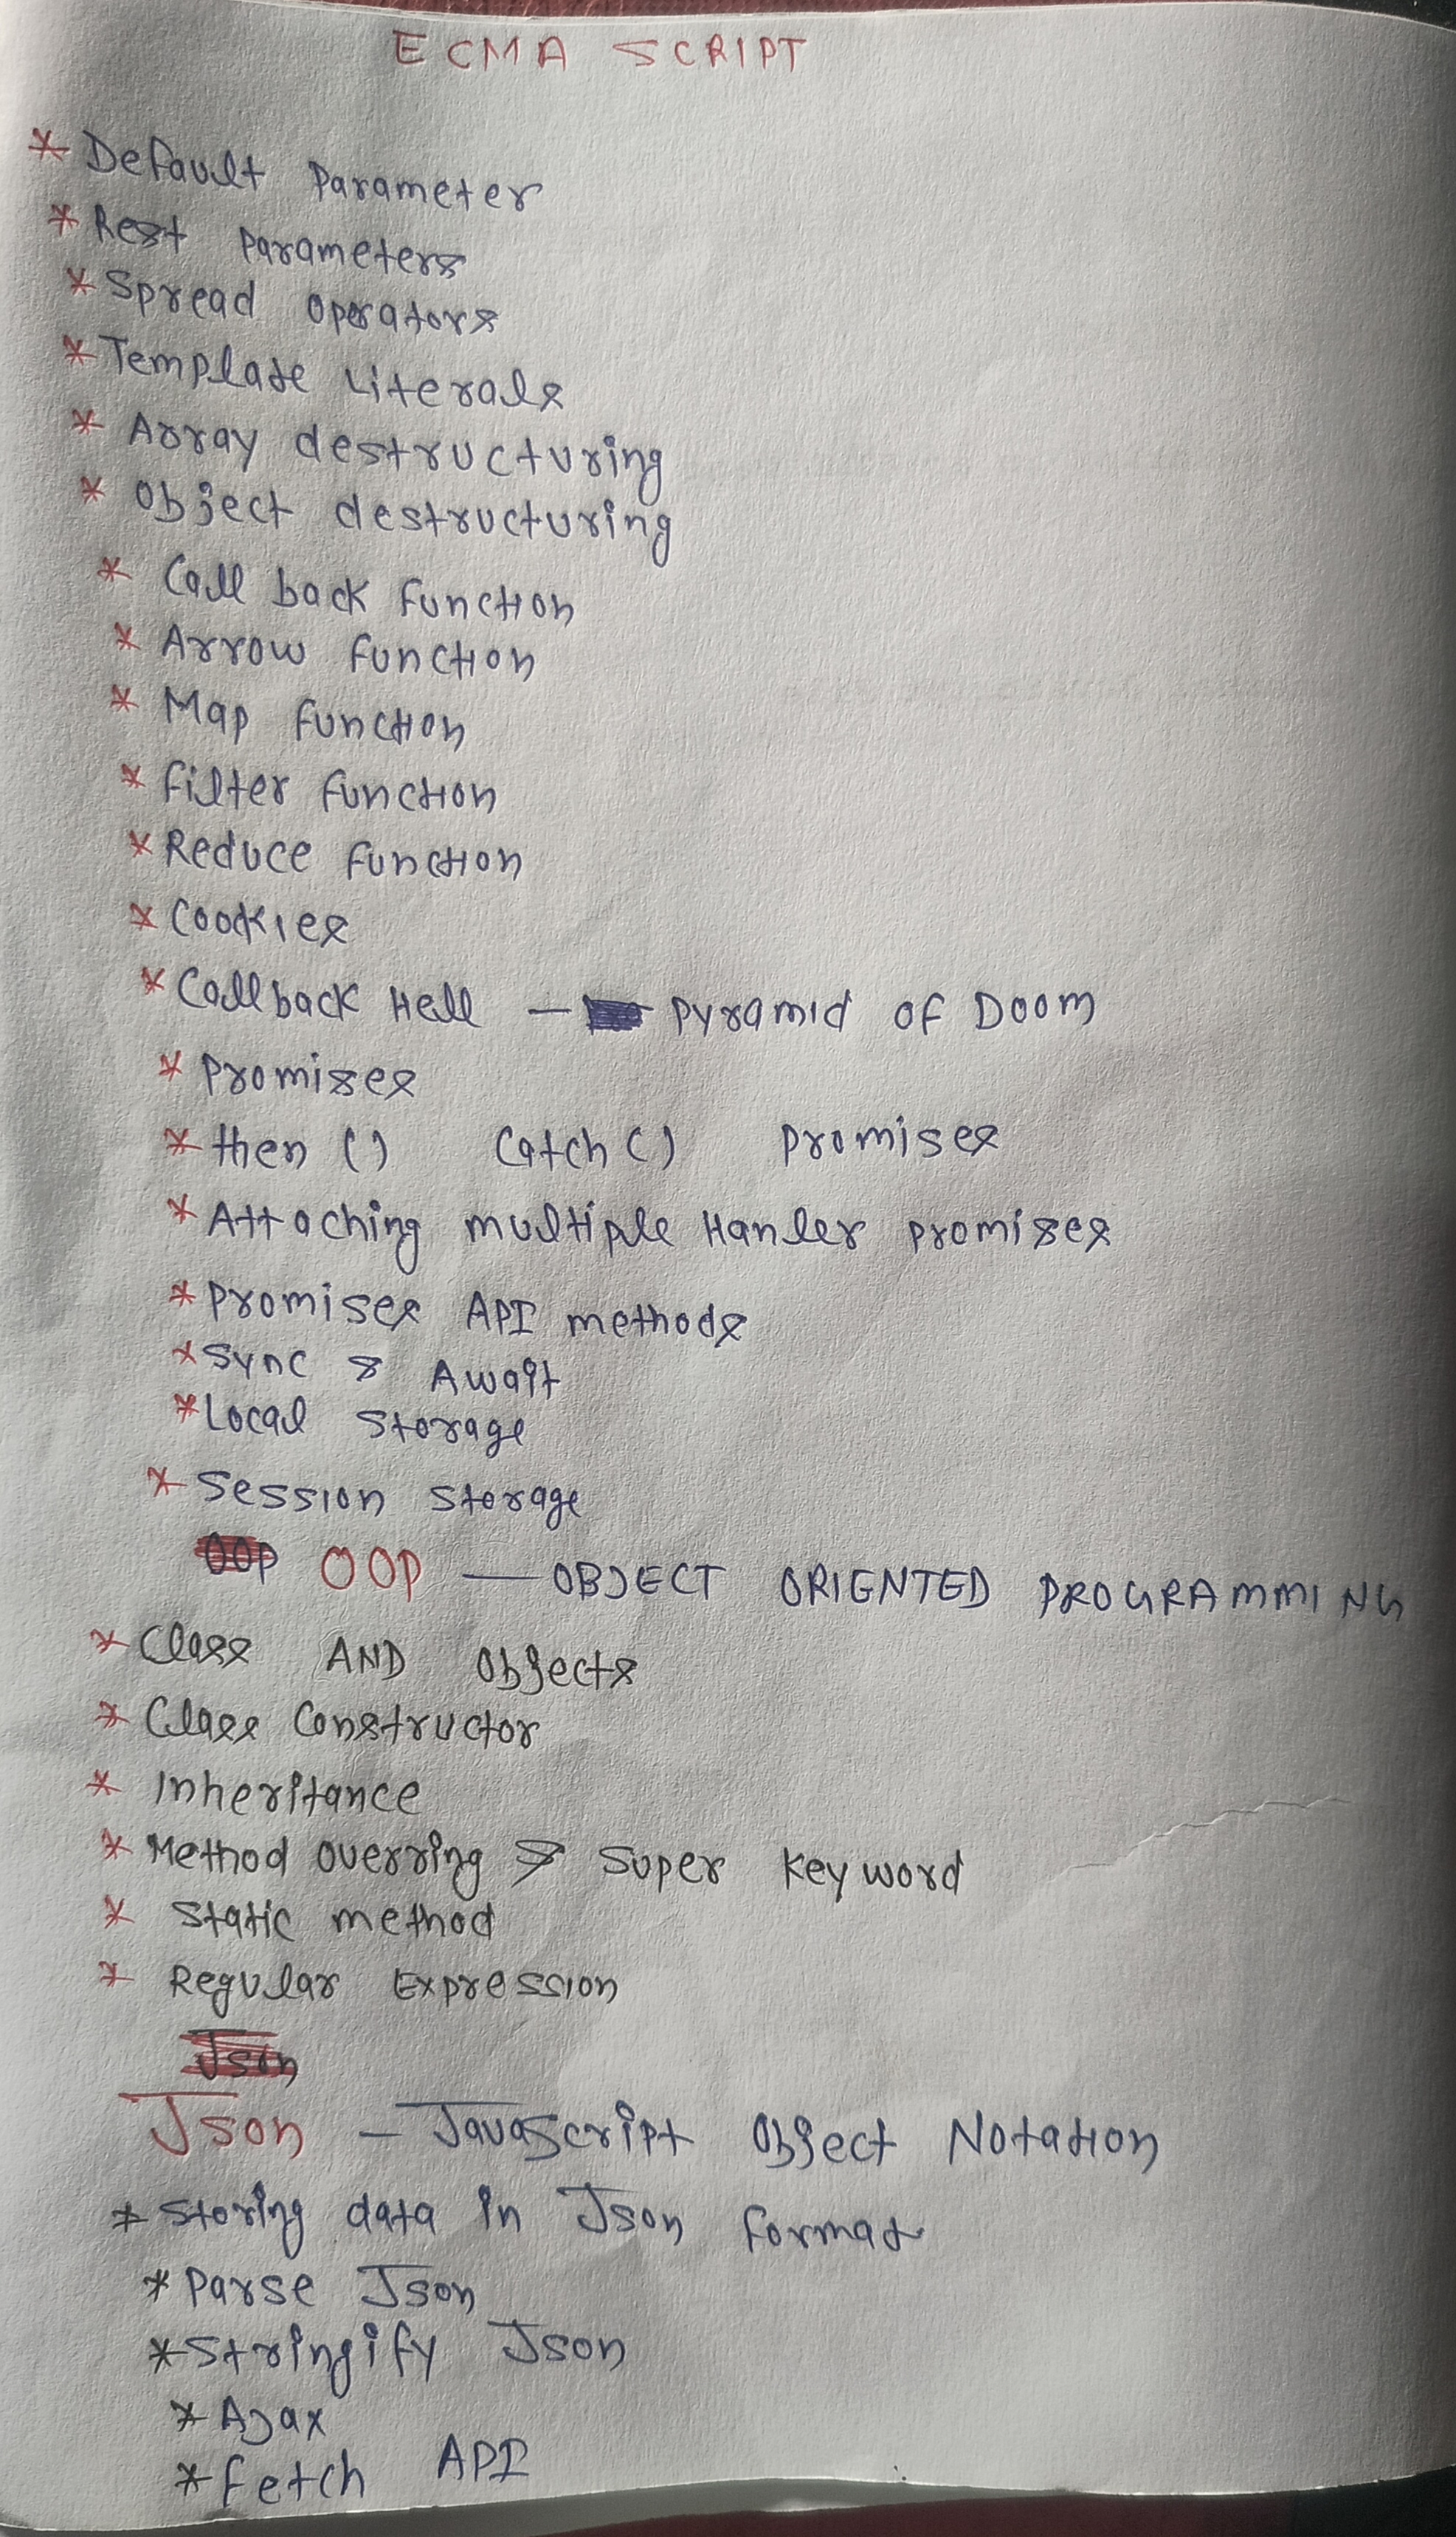 ECMA SCRIPT
* Default Parameter
* Rest Parameters
* Spread Operators
* Template Literals
* Array destructuring
* Object destructuring
* Call back function
* Arrow function
* Map function
* Filter function
* Reduce function
* Cookies
* Callback Hell — Pyramid of Doom
* Promises
* then () Catch () Promises
* Attaching multiple Hanler promises
* Promises API methods
* Sync & Await
* Local Storage
* Session Storage
OOP OOP — OBJECT ORIENTED PROGRAMMING
* Class AND Objects
* Class Constructor
* Inheritance
* Method overring & Super Keyword
* Static method
* Regular Expression
Json
Json — JavaScript Object Notation
* Storing data in Json format
* Parse Json
* Stringify Json
* Ajax
* Fetch API